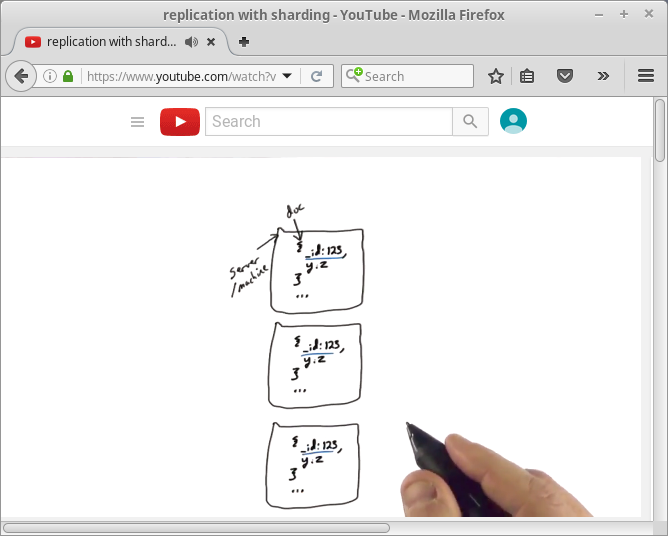 replication with sharding - YouTube - Mozilla Firefox
replication with shard...
https://www.youtube.com/watch?v
Search
Search
doc
server
/machine
{ _id:123,
y:z
}
...
{ _id:123,
y:z
}
...
{ _id:123,
y:z
}
...